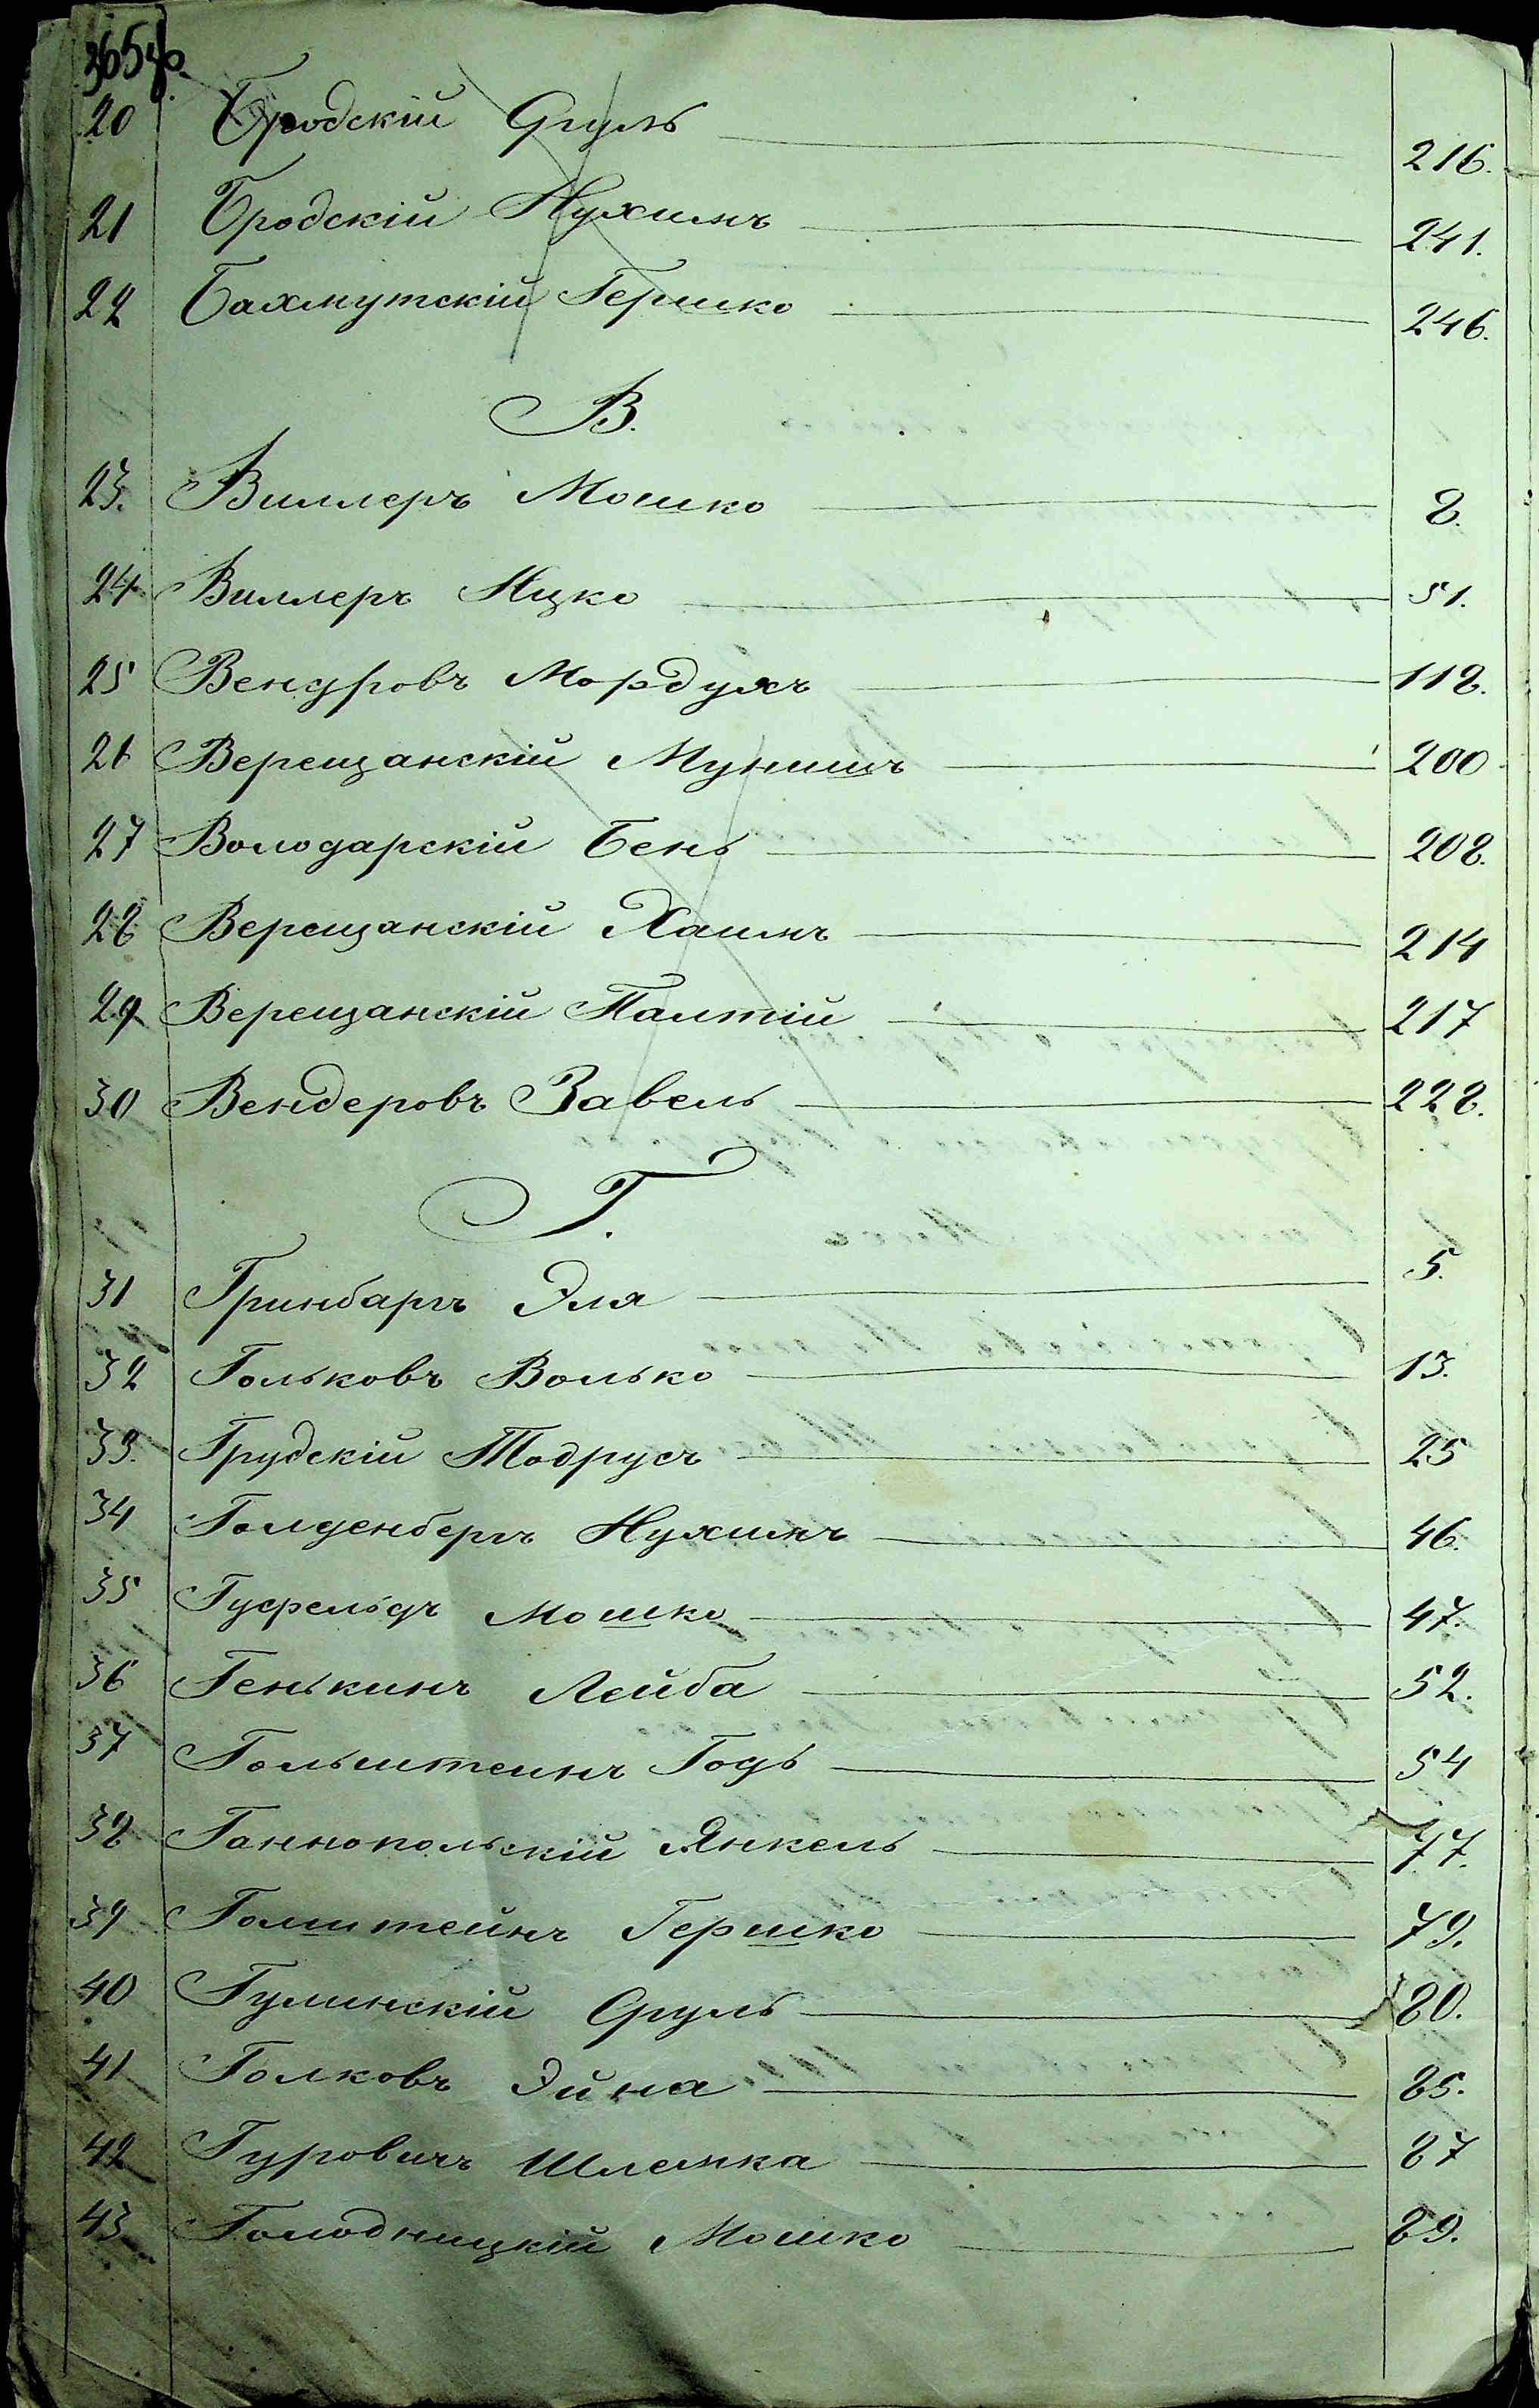 20 Бродскій Сруль 216.
21 Бродскій Нухимъ 241.
22 Бахмутскій Гершко 246.
В.
23. Виллеръ Мошко 8.
24 Виллеръ Ицко 51.
25 Вендровъ Мордухъ 118.
26 Верещанскій Мунишъ 200
27 Володарскій Бень 208.
28 Верещанскій Хаимъ 214
29 Верещанскій Палтій 217
30 Вендеровъ Завель 228.
Г.
31 Гринбаргъ Эля 5.
32 Гольковъ Волько 13.
33. Грудскій Тодрусъ 25
34 Голденбергъ Нухимъ 46.
35 Гусфельдъ Мошко 47.
36 Генькинъ Лейба 52.
37 Гольштеинъ Годь 54
38 Ганнопольскій Янкель 77.
39 Голштейнъ Гершко 79.
40 Гулинскій Сруль 80.
41 Голковъ Эйна 85.
42 Гуровичъ Шлемка 87
43 Голодницкій Мошко 89.